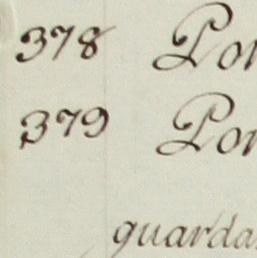 378 Por
379 Por
guarda